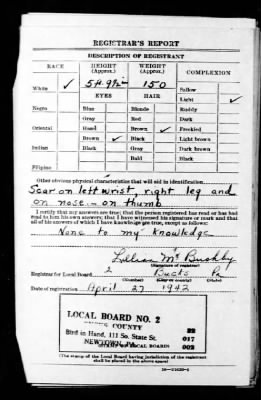 REGISTRAR'S REPORT
DESCRIPTION OF REGISTRANT
RACE HEIGHT (Approx.) WEIGHT (Approx.) COMPLEXION
White ✓ 5ft 9½ 150 Sallow
EYES HAIR Light ✓
Negro Blue Blonde Ruddy
Gray Red Dark
Oriental Hazel Brown ✓ Freckled
Brown ✓ Black Light brown
Indian Black Gray Dark brown
Bald Black
Filipino
Other obvious physical characteristics that will aid in identification
Scar on left wrist, right leg and
on nose - on thumb
I certify that my answers are true; that the person registered has read or has had
read to him his own answers; that I have witnessed his signature or mark and that
all of his answers of which I have knowledge are true, except as follows:
None to my knowledge
Lillian Mc
(Signature of registrar)
Registrar for Local Board 2 Bucks Pa
(Number) (City or county) (State)
Date of registration April 27 1942
LOCAL BOARD NO. 2
COUNTY 22
Bird in Hand, 111 So. State St. 017
NEWTOWN, PA. 002
(STAMP OF LOCAL BOARD)
(The stamp of the Local Board having jurisdiction of the registrant
shall be placed in the above space)